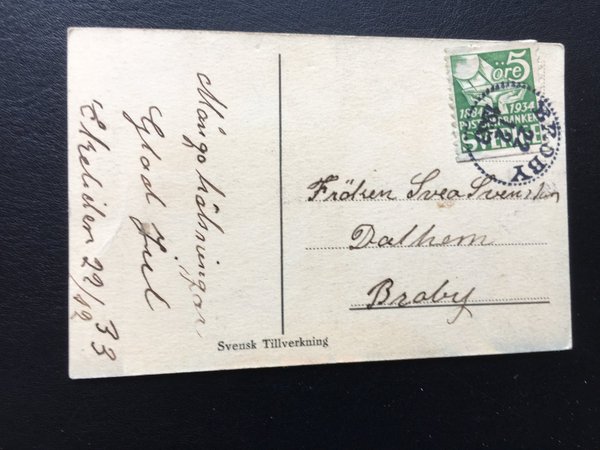 Många hälsningar
God Jul
Ekeliden 22/12 33
öre 5
1884 1934
POSTSPARBANKEN
SVERIGE
BROBY
22
12
Fröken Svea Svensson
Dalhem
Broby
Svensk Tillverkning